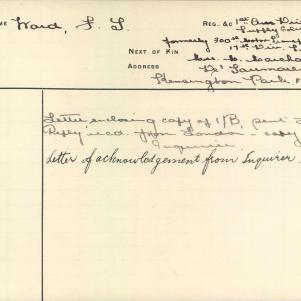 ME Ward, F. L. REG. &C 1st Aus Div
Supply Col
formerly 300th Motor Trnspt
17th Div.
NEXT OF KIN Mrs.
ADDRESS
Kensington Park
Letter enclosing copy of 1/B, sent
Reply recd. from London copy
Inquirer
Letter of acknowledgement from Inquirer.